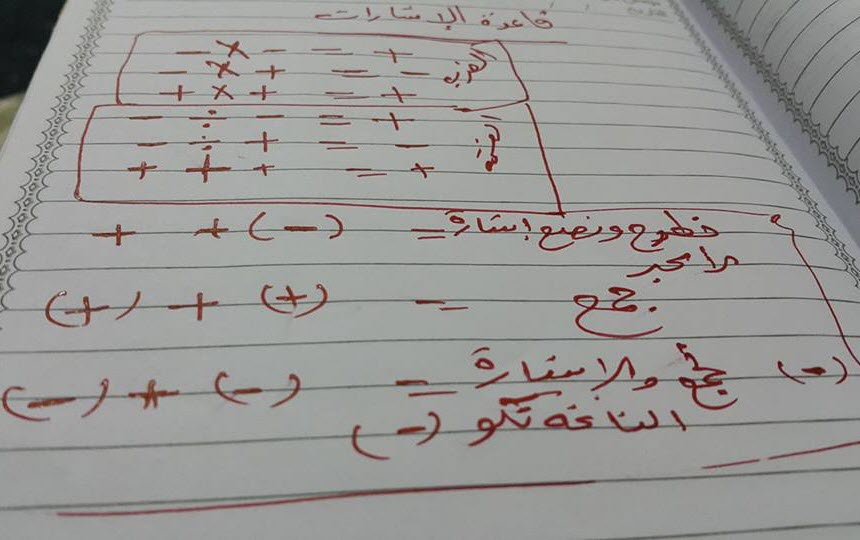 قاعدة الإشارات
- × - = +
الضرب
- × + = -
+ × + = +
- ÷ - = +
القسمة
- ÷ + = -
+ ÷ + = +
+ + (-) = نطرح ونضع إشارة
الأكبر
(+) + (+) = جمع
(-) + (-) = جمع والاشارة (-)
الناتجة تكو (-)